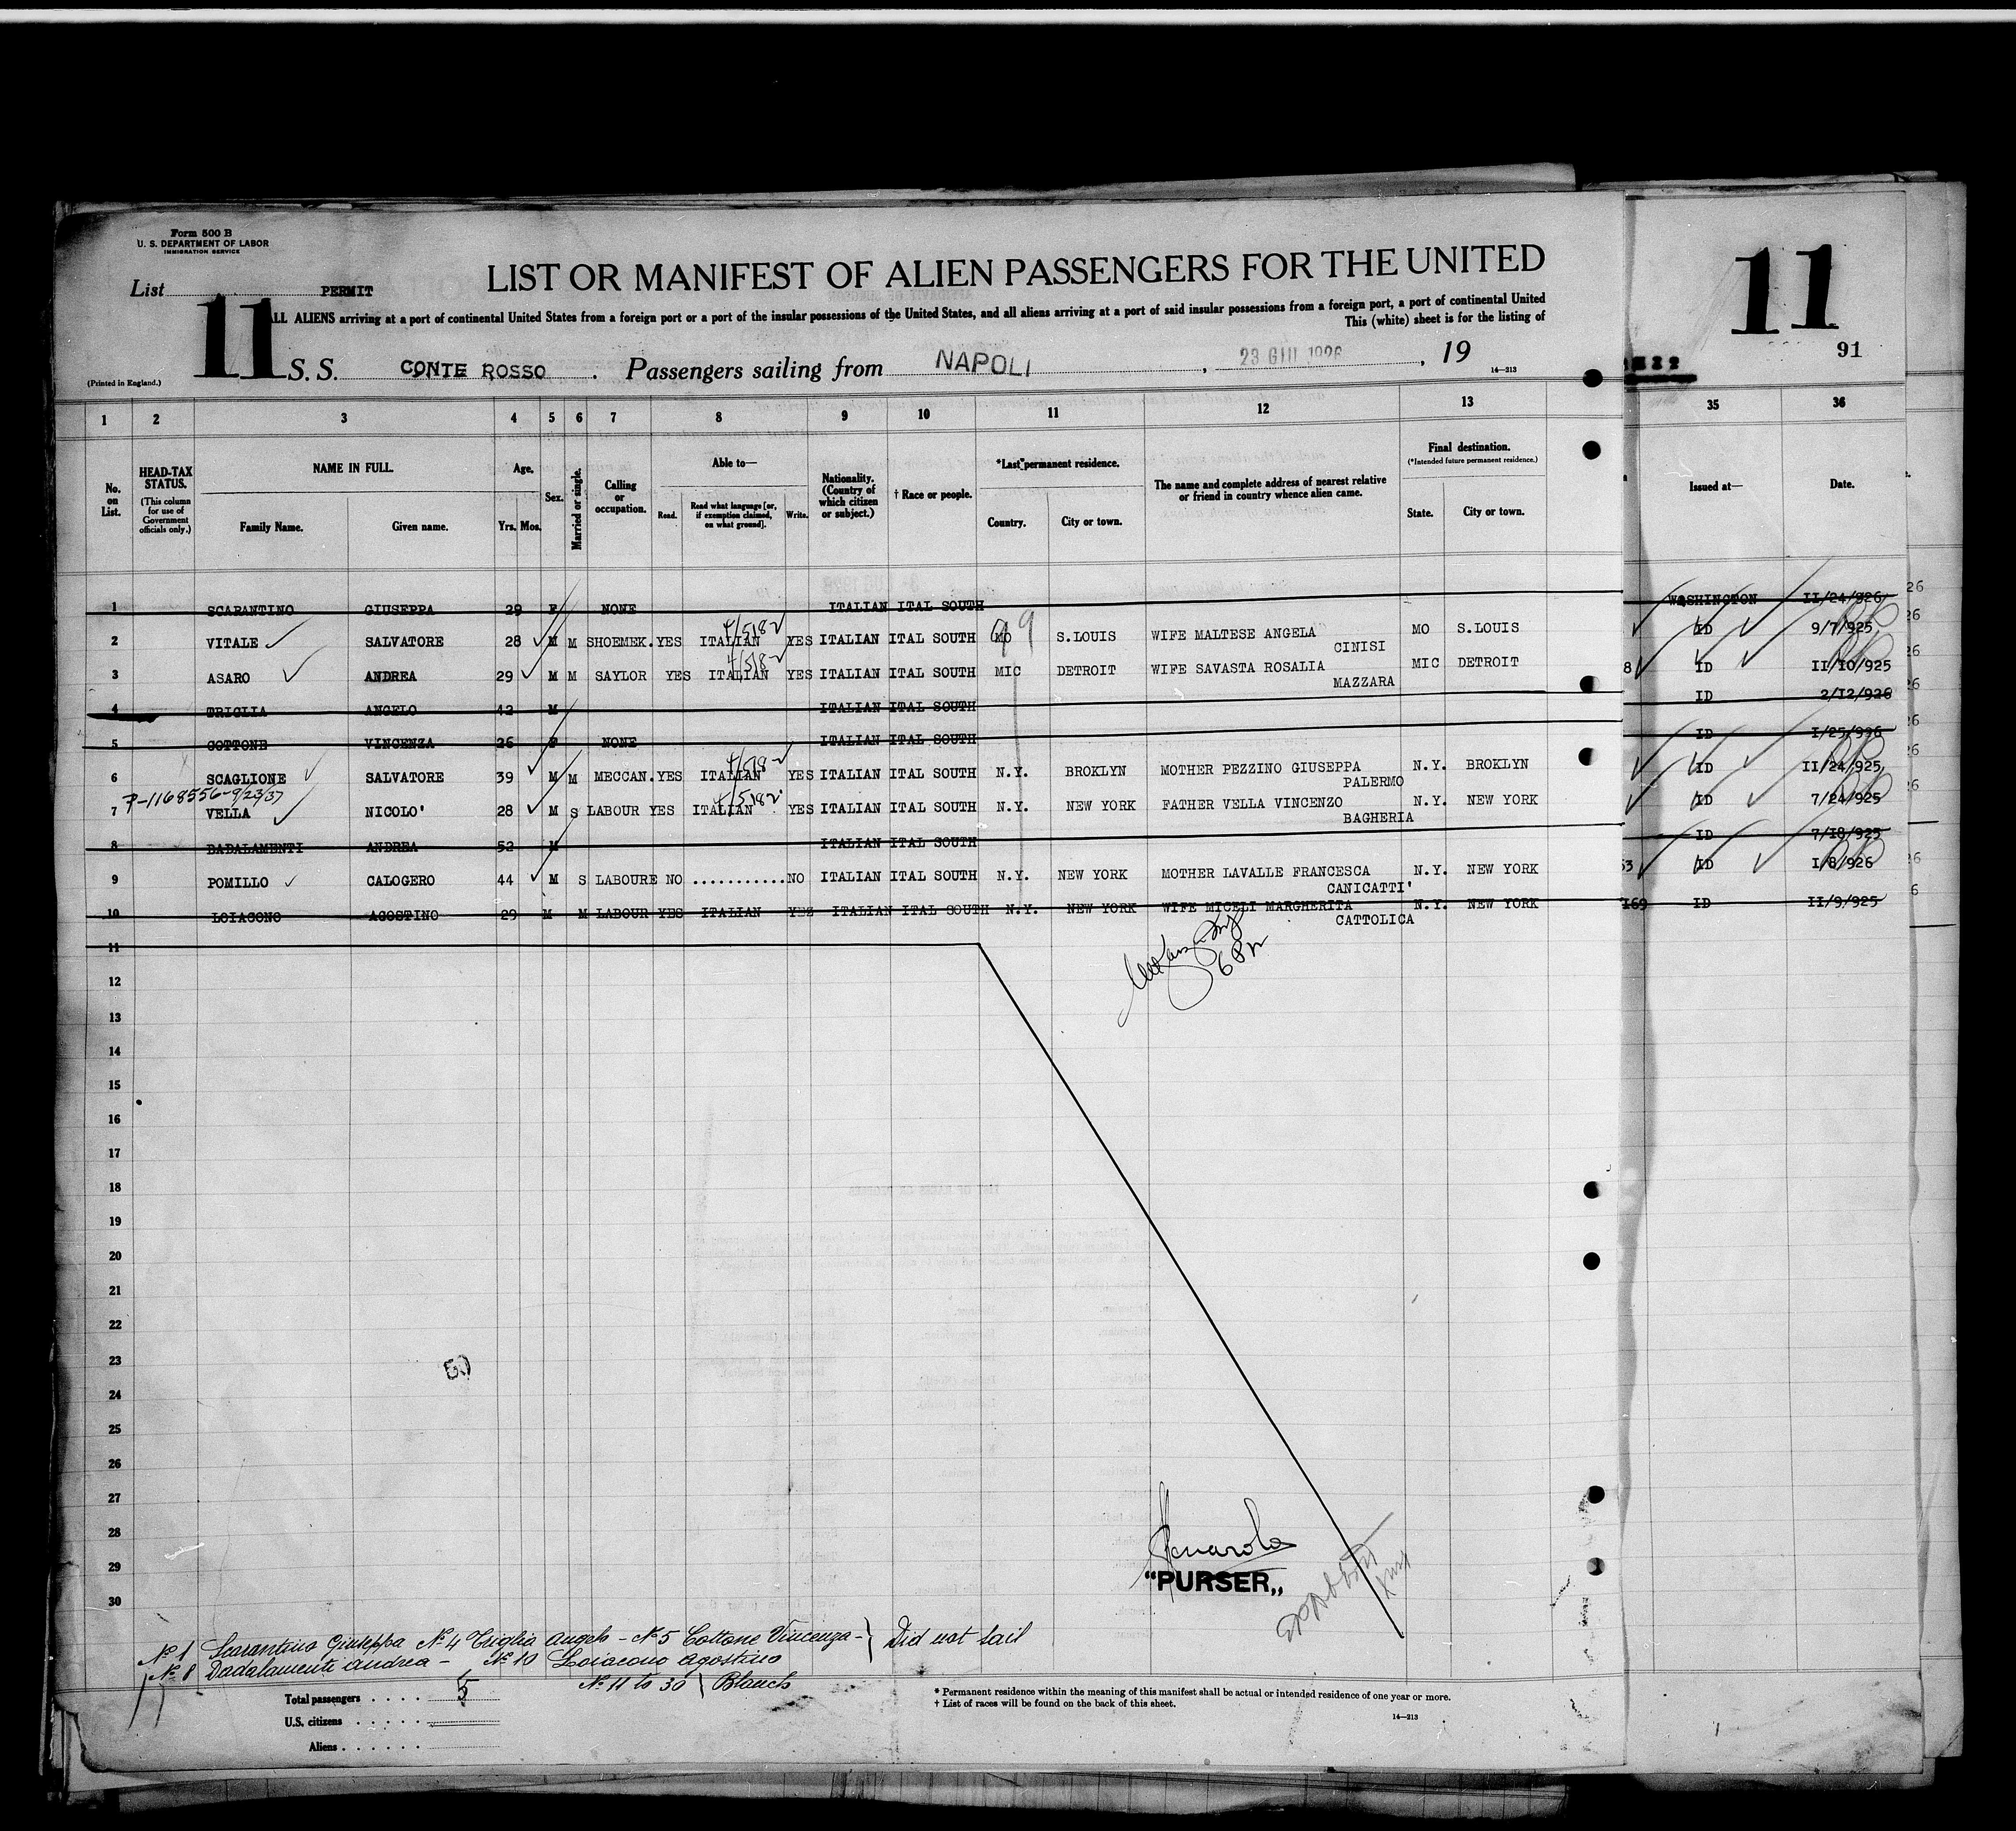 Form 500 B
U. S. DEPARTMENT OF LABOR
IMMIGRATION SERVICE
List PERMIT
11
LIST OR MANIFEST OF ALIEN PASSENGERS FOR THE UNITED
ALL ALIENS arriving at a port of continental United States from a foreign port or a port of the insular possessions of the United States, and all aliens arriving at a port of said insular possessions from a foreign port, a port of continental United
This (white) sheet is for the listing of
(Printed in England.)
S. S. CONTE ROSSO . Passengers sailing from NAPOLI , 23 GIU 1926 , 19
14—213
11
91
1 2 3 4 5 6 7 8 9 10 11 12 13 35 36
No. on List.
HEAD-TAX STATUS.
(This column for use of Government officials only.)
NAME IN FULL.
Family Name. Given name.
Age.
Yrs. Mos.
Sex.
Married or single.
Calling or occupation.
Able to—
Read. Read what language [or, if exemption claimed, on what ground]. Write.
Nationality. (Country of which citizen or subject.)
† Race or people.
*Last permanent residence.
Country. City or town.
The name and complete address of nearest relative or friend in country whence alien came.
Final destination.
(*Intended future permanent residence.)
State. City or town.
Issued at—
Date.
1 SCARANTINO GIUSEPPA 29 F NONE ITALIAN ITAL SOUTH WASHINGTON II/24/926
2 VITALE SALVATORE 28 M M SHOEMEK. YES ITALIAN YES ITALIAN ITAL SOUTH MO S.LOUIS WIFE MALTESE ANGELA CINISI MO S.LOUIS ID 9/7/925
3 ASARO ANDREA 29 M M SAYLOR YES ITALIAN YES ITALIAN ITAL SOUTH MIC DETROIT WIFE SAVASTA ROSALIA MAZZARA MIC DETROIT 8 ID II/10/925
4 TRIGLIA ANGELO 42 M ITALIAN ITAL SOUTH ID 2/12/926
5 COTTONE VINCENZA 26 F NONE ITALIAN ITAL SOUTH ID I/25/926
6 SCAGLIONE SALVATORE 39 M M MECCAN. YES ITALIAN YES ITALIAN ITAL SOUTH N.Y. BROKLYN MOTHER PEZZINO GIUSEPPA PALERMO N.Y. BROKLYN ID II/24/925
P-1168556-9/23/37
7 VELLA NICOLO' 28 M S LABOUR YES ITALIAN YES ITALIAN ITAL SOUTH N.Y. NEW YORK FATHER VELLA VINCENZO BAGHERIA N.Y. NEW YORK ID 7/24/925
8 BADALAMENTI ANDREA 52 M ITALIAN ITAL SOUTH ID 7/18/925
9 POMILLO CALOGERO 44 M S LABOURE NO ........... NO ITALIAN ITAL SOUTH N.Y. NEW YORK MOTHER LAVALLE FRANCESCA CANICATTI' N.Y. NEW YORK 53 ID I/8/926
10 LOIACONO AGOSTINO 29 M M LABOUR YES ITALIAN YES ITALIAN ITAL SOUTH N.Y. NEW YORK WIFE MICELI MARGHERITA CATTOLICA N.Y. NEW YORK 169 ID II/9/925
11
12
13
14
15
16
17
18
19
20
21
22
23
24
25
26
27
28
29
30
"PURSER„
No 1 Scarantino Giuseppa No 4 Triglia Angelo - No 5 Cottone Vincenza - } Did not sail
No 8 Badalamenti Andrea - No 10 Loiacono Agostino
No 11 to 30 } Blanch
Total passengers . . . . 5
U.S. citizens . . . . .
Aliens . . . . . .
* Permanent residence within the meaning of this manifest shall be actual or intended residence of one year or more.
† List of races will be found on the back of this sheet.
14—213